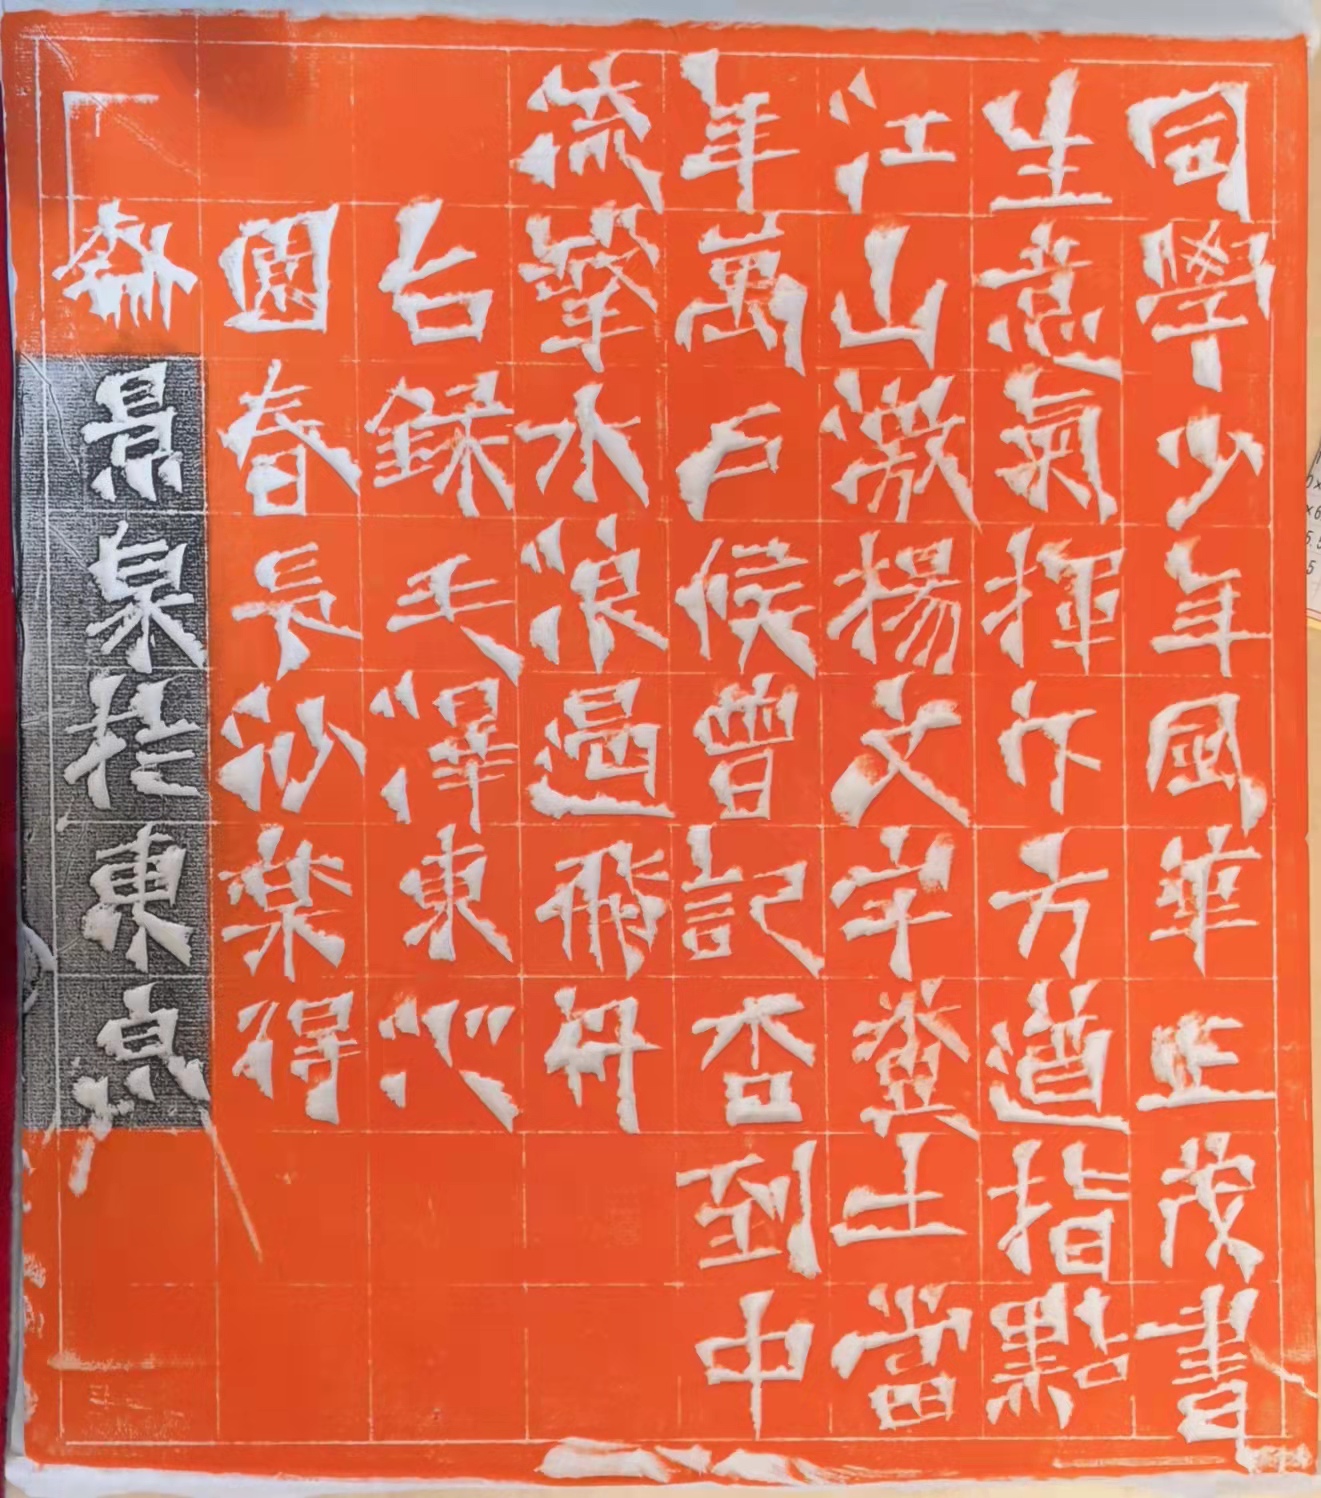 同學少年風華正茂書
生意氣揮斥方遒指點
江山激揚文字糞土當
年萬戶候曾記否到中
流擊水浪遏飛舟
台錄毛澤東沁
園春長沙得
齋景泉東点